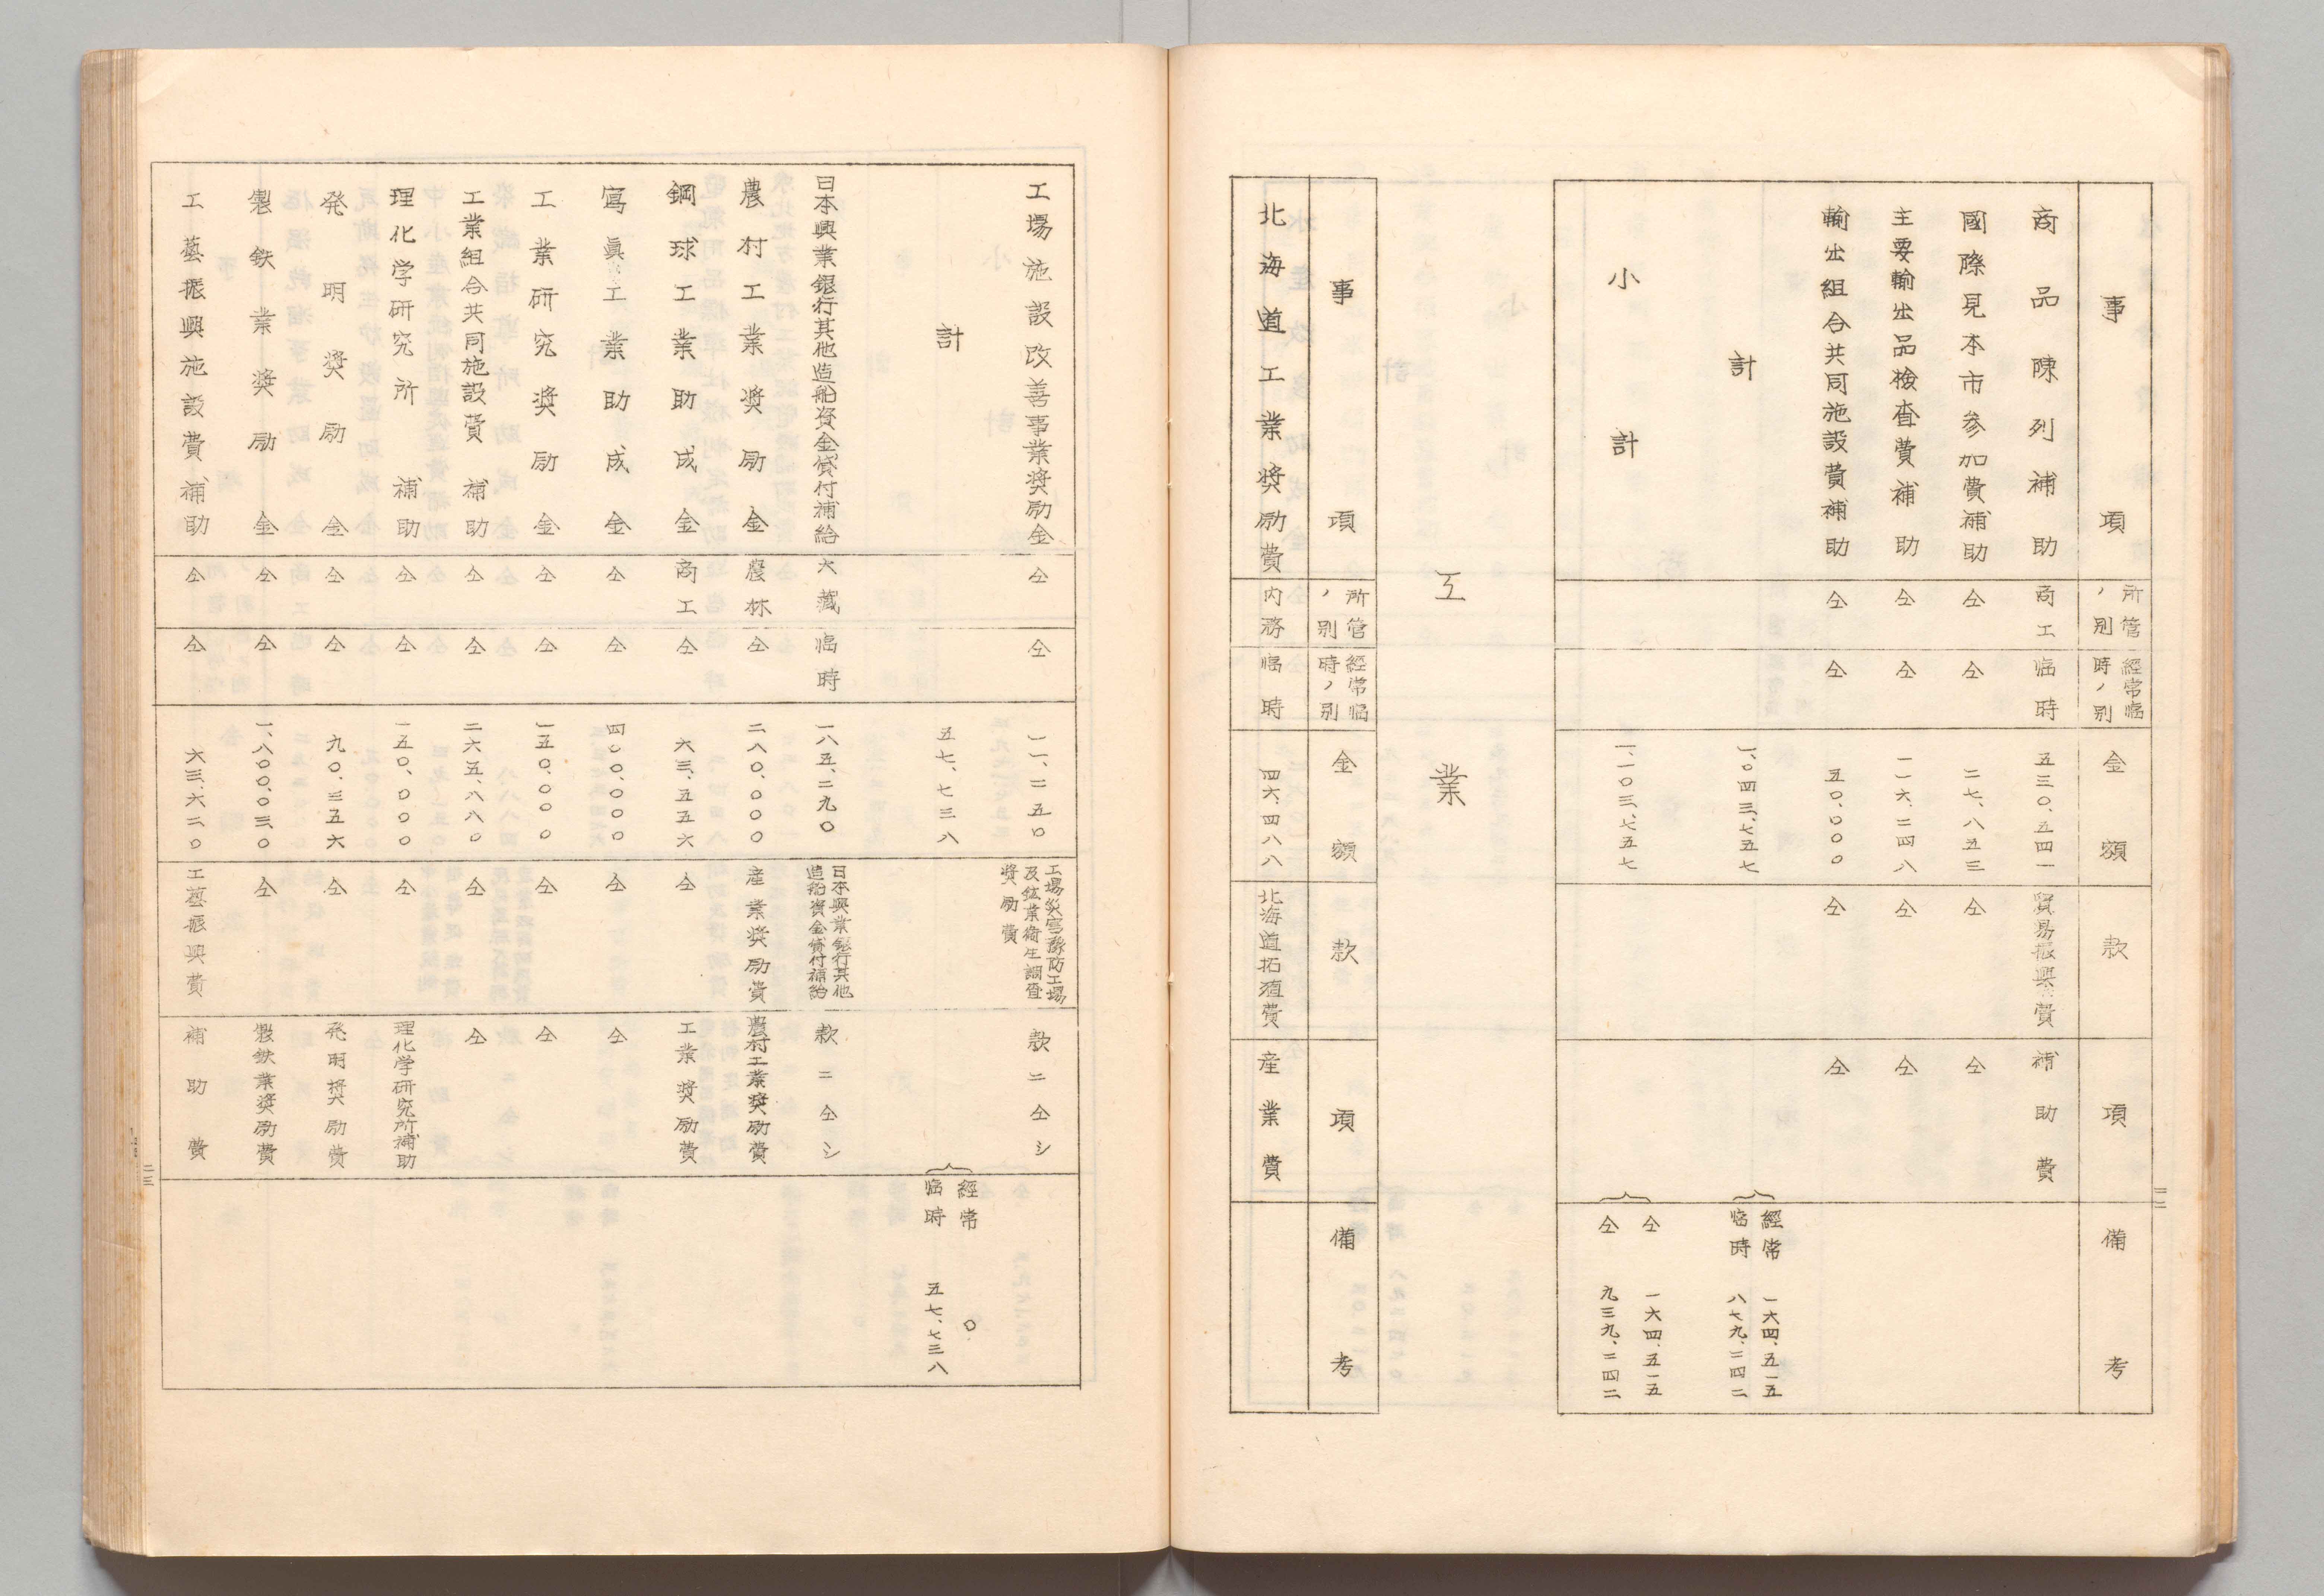 事項 所管ノ別 經常臨時ノ別 金額 款 項 備考
商品陳列補助 商工 臨時 五三〇、五四一 貿易振興費 補助費
國際見本市参加費補助 仝 仝 二七、八五三 仝 仝
主要輸出品検査費補助 仝 仝 一一六、二四八 仝 仝
輸出組合共同施設費補助 仝 仝 五〇、〇〇〇 仝 仝
計 一、〇四三、七五七 經常 一六四、五一五 臨時 八七九、二四二
小計 一、一〇三、七五七 仝 一六四、五一五 仝 九三九、二四二
工業
事項 所管ノ別 經常臨時ノ別 金額 款 項 備考
北海道工業奬励費 内務 臨時 四六、四八八 北海道拓殖費 産業費
二二
工場施設改善事業奬励金 仝 仝 一一、二五〇 工場災害豫防工場及鉱業衛生調査奬励費 款ニ仝シ
計 五七、七三八 經常 〇 臨時 五七、七三八
日本興業銀行其他造船資金貸付補給 大藏 臨時 一八五、二九〇 日本興業銀行其他造船資金貸付補給 款ニ仝シ
農村工業奬励金 農林 仝 二八〇、〇〇〇 産業奬励費 農村工業奬励費
鋼球工業助成金 商工 仝 六三、五五六 仝 工業奬励費
寫眞工業助成金 仝 仝 四〇〇、〇〇〇 仝 仝
工業研究奬励金 仝 仝 一五〇、〇〇〇 仝 仝
工業組合共同施設費補助 仝 仝 二六五、八八〇 仝 仝
理化学研究所補助 仝 仝 一五〇、〇〇〇 仝 理化学研究所補助
発明奬励金 仝 仝 九〇、三五六 仝 発明奬励費
製鉄業奬励金 仝 仝 一、八〇〇、〇三〇 仝 製鉄業奬励費
工藝振興施設費補助 仝 仝 六三、六二〇 工藝振興費 補助費
二三